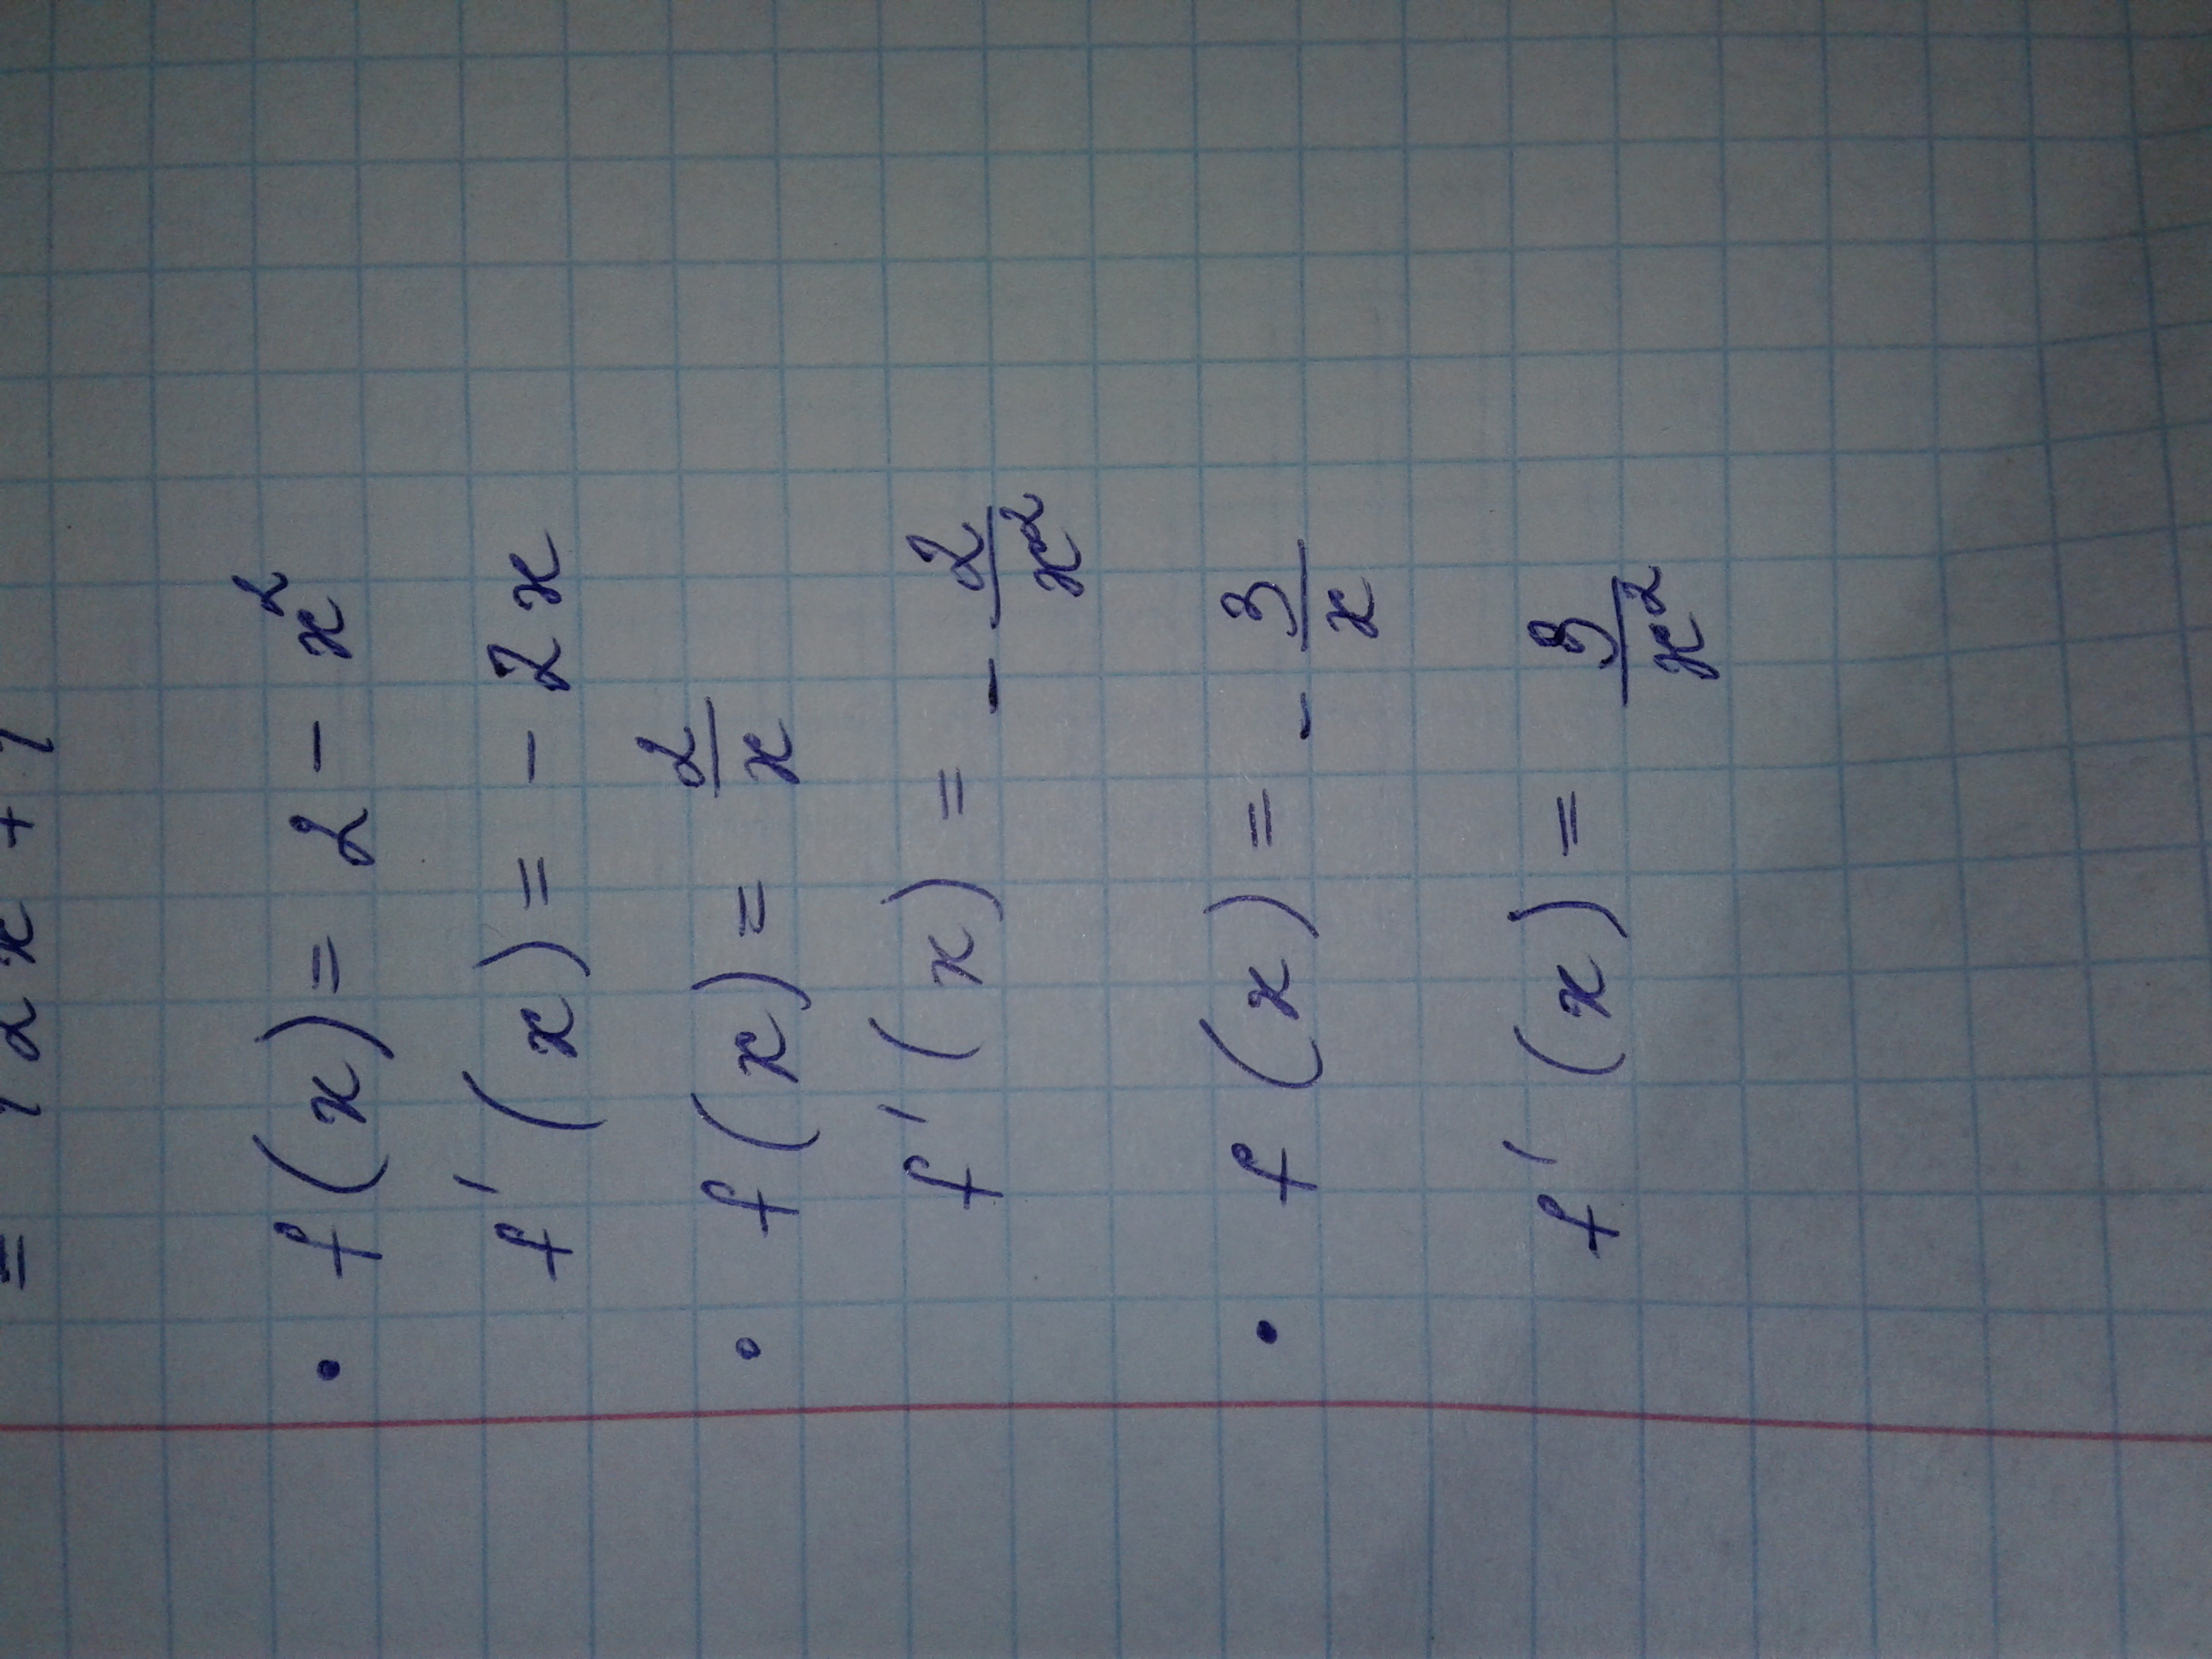 = 12x + 1
• f(x) = 2 - x²
f'(x) = - 2x
• f(x) = 2/x
f'(x) = - 2/x²
• f(x) = - 3/x
f'(x) = 3/x²